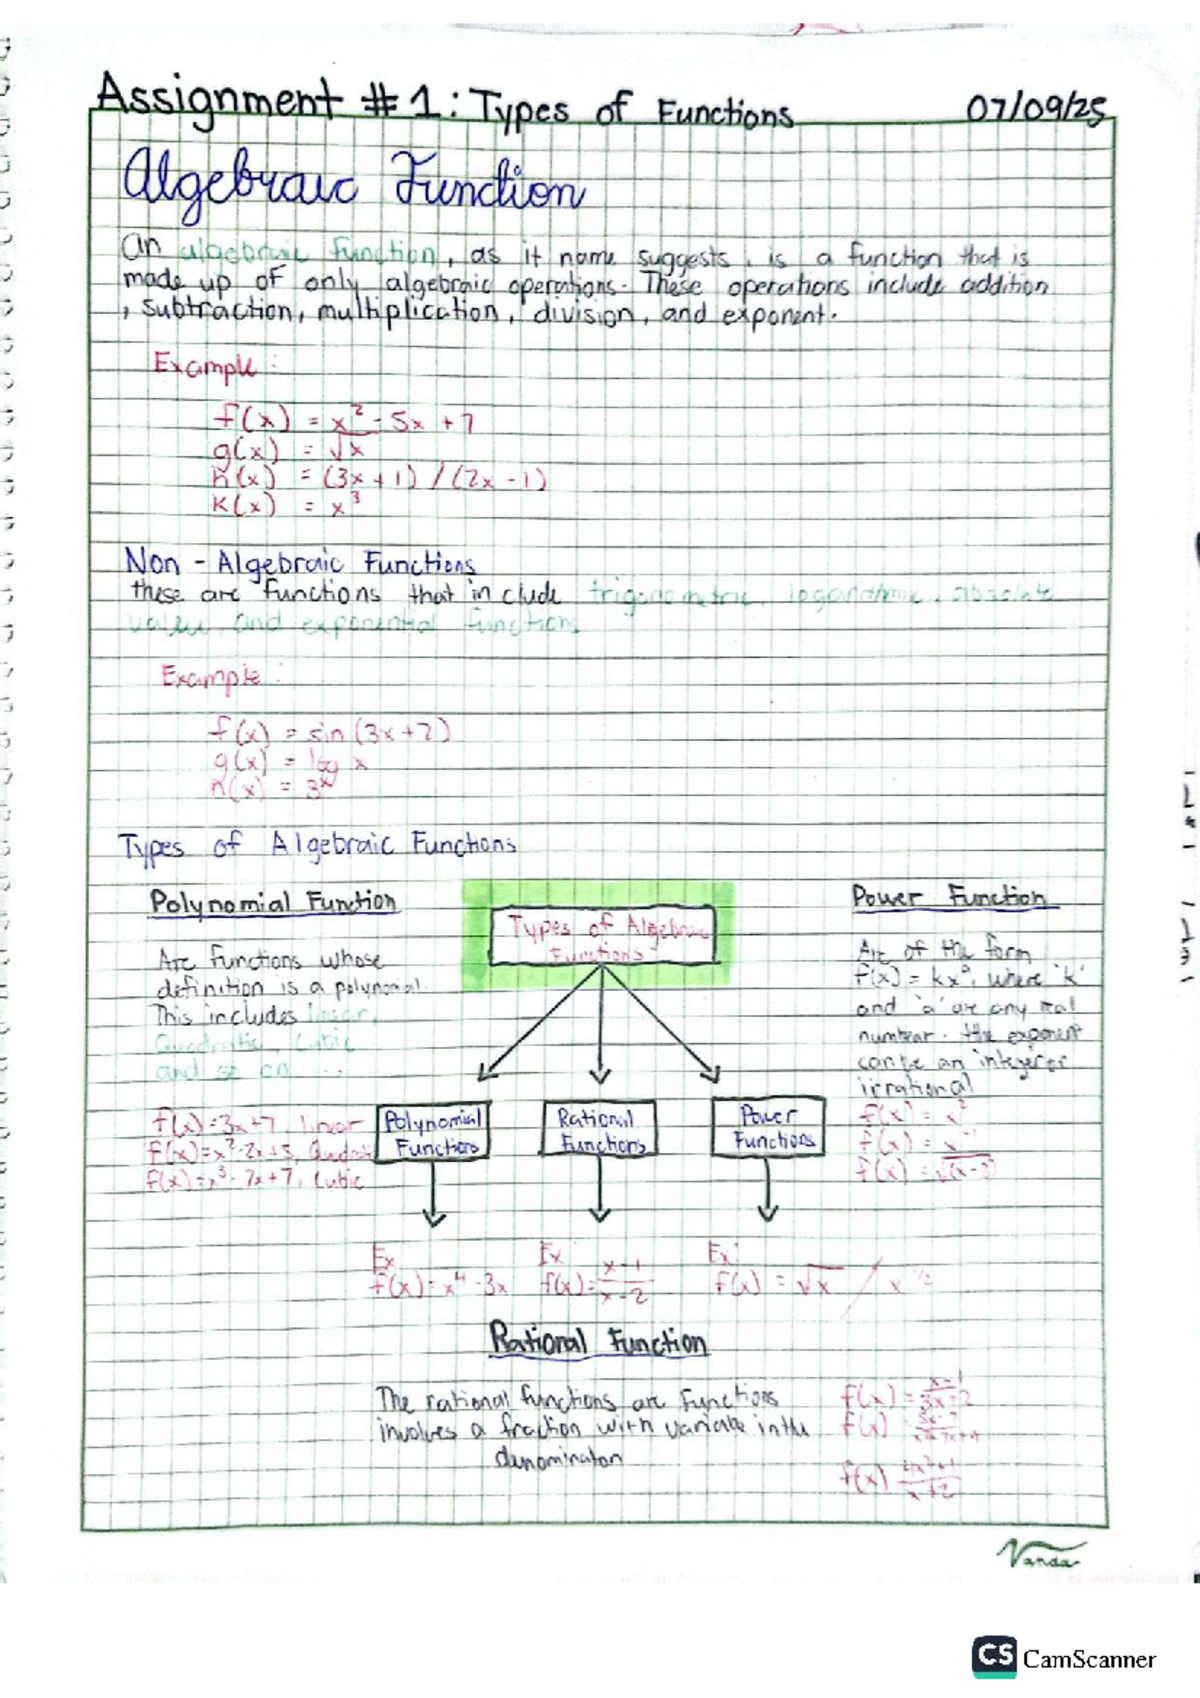 Assignment # 1: Types of Functions 07/09/25
Algebraic Function
An algebraic function, as it name suggests, is a function that is
made up of only algebraic operations. These operations include addition
, subtraction, multiplication, division, and exponent.
Example:
f(x) = x² - 5x + 7
g(x) = √x
h(x) = (3x + 1) / (2x - 1)
k(x) = x³
Non - Algebraic Functions
these are functions that include trigonometric, logarithmic, absolute
value, and exponential functions
Example:
f(x) = sin (3x + 2)
g(x) = log x
h(x) = 3ˣ
Types of Algebraic Functions
Polynomial Function
Are functions whose
definition is a polynomial.
This includes linear,
Quadratic, Cubic
and so on ...
f(x) = 3x + 7, linear
f(x) = x² - 2x + 5, Quadratic
f(x) = x³ - 7x + 7, Cubic
Types of Algebraic
Functions
Polynomial
Functions
Rational
Functions
Power
Functions
Ex
f(x) = x⁴ - 3x
Ex
f(x) = x - 1 / x - 2
Ex
f(x) = √x / x^1/2
Power Function
Are of the form
f(x) = kxᵃ, where 'k'
and 'a' are any real
number. the exponent
can be an integer or
irrational
f(x) = x²
f(x) = x⁻¹
Rational Function
The rational functions are functions
involves a fraction with variable in the
denominator
f(x) =
f(x)
f(x)
Vanda
CS CamScanner